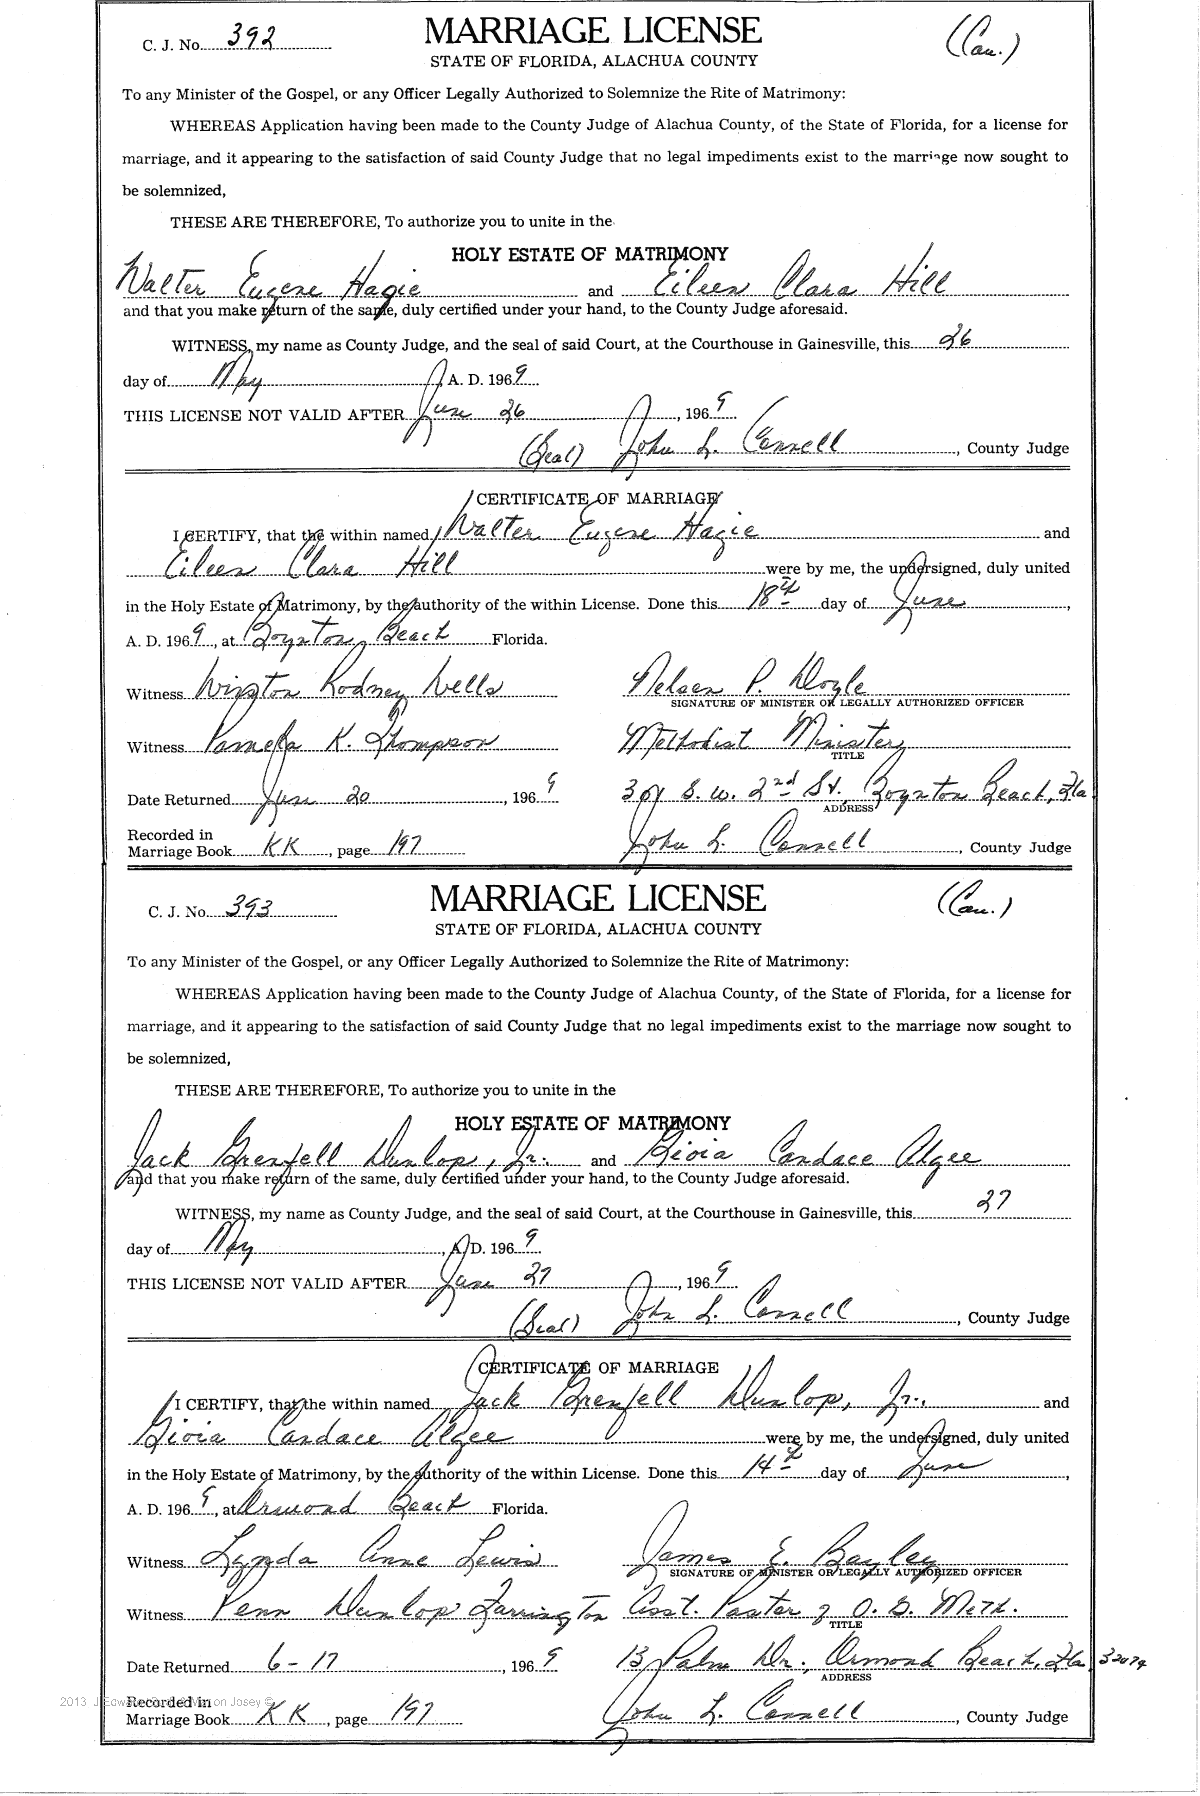 C. J. No. 392 MARRIAGE LICENSE (Cau.)
STATE OF FLORIDA, ALACHUA COUNTY
To any Minister of the Gospel, or any Officer Legally Authorized to Solemnize the Rite of Matrimony:
WHEREAS Application having been made to the County Judge of Alachua County, of the State of Florida, for a license for
marriage, and it appearing to the satisfaction of said County Judge that no legal impediments exist to the marriage now sought to
be solemnized,
THESE ARE THEREFORE, To authorize you to unite in the
HOLY ESTATE OF MATRIMONY
Walter Eugene Hagie and Eileen Clara Hill
and that you make return of the same, duly certified under your hand, to the County Judge aforesaid.
WITNESS, my name as County Judge, and the seal of said Court, at the Courthouse in Gainesville, this 26
day of May, A. D. 1969
THIS LICENSE NOT VALID AFTER June 26, 1969
(Seal) John L. Connell, County Judge
CERTIFICATE OF MARRIAGE
I CERTIFY, that the within named Walter Eugene Hagie and
Eileen Clara Hill were by me, the undersigned, duly united
in the Holy Estate of Matrimony, by the authority of the within License. Done this 18th day of June,
A. D. 1969, at Boynton Beach Florida.
Witness Winston Rodney Wells Nelson P. Doyle
SIGNATURE OF MINISTER OR LEGALLY AUTHORIZED OFFICER
Witness Pamela K. Thompson Methodist Minister
TITLE
Date Returned June 20, 1969 301 S. W. 2nd St., Boynton Beach, Fla.
ADDRESS
Recorded in
Marriage Book KK, page 197 John L. Connell, County Judge
C. J. No. 393 MARRIAGE LICENSE (Cau.)
STATE OF FLORIDA, ALACHUA COUNTY
To any Minister of the Gospel, or any Officer Legally Authorized to Solemnize the Rite of Matrimony:
WHEREAS Application having been made to the County Judge of Alachua County, of the State of Florida, for a license for
marriage, and it appearing to the satisfaction of said County Judge that no legal impediments exist to the marriage now sought to
be solemnized,
THESE ARE THEREFORE, To authorize you to unite in the
HOLY ESTATE OF MATRIMONY
Jack Grenfell Dunlop, Jr. and Gioia Candace Algee
and that you make return of the same, duly certified under your hand, to the County Judge aforesaid.
WITNESS, my name as County Judge, and the seal of said Court, at the Courthouse in Gainesville, this 27
day of May, A. D. 1969
THIS LICENSE NOT VALID AFTER June 27, 1969
(Seal) John L. Connell, County Judge
CERTIFICATE OF MARRIAGE
I CERTIFY, that the within named Jack Grenfell Dunlop, Jr. and
Gioia Candace Algee were by me, the undersigned, duly united
in the Holy Estate of Matrimony, by the authority of the within License. Done this 14th day of June,
A. D. 1969, at Ormond Beach Florida.
Witness Lynda Anne Lewis James E. Bayley
SIGNATURE OF MINISTER OR LEGALLY AUTHORIZED OFFICER
Witness Penn Dunlop Farrington Asst. Pastor of O. B. Meth.
TITLE
Date Returned 6-17, 1969 13 Palm Dr., Ormond Beach, Fla. 32074
ADDRESS
Recorded in
Marriage Book KK, page 197 John L. Connell, County Judge
2013